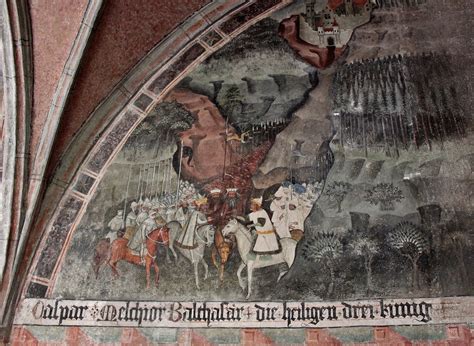 Caspar Melchior Balthasar + die heiligen drei kunig